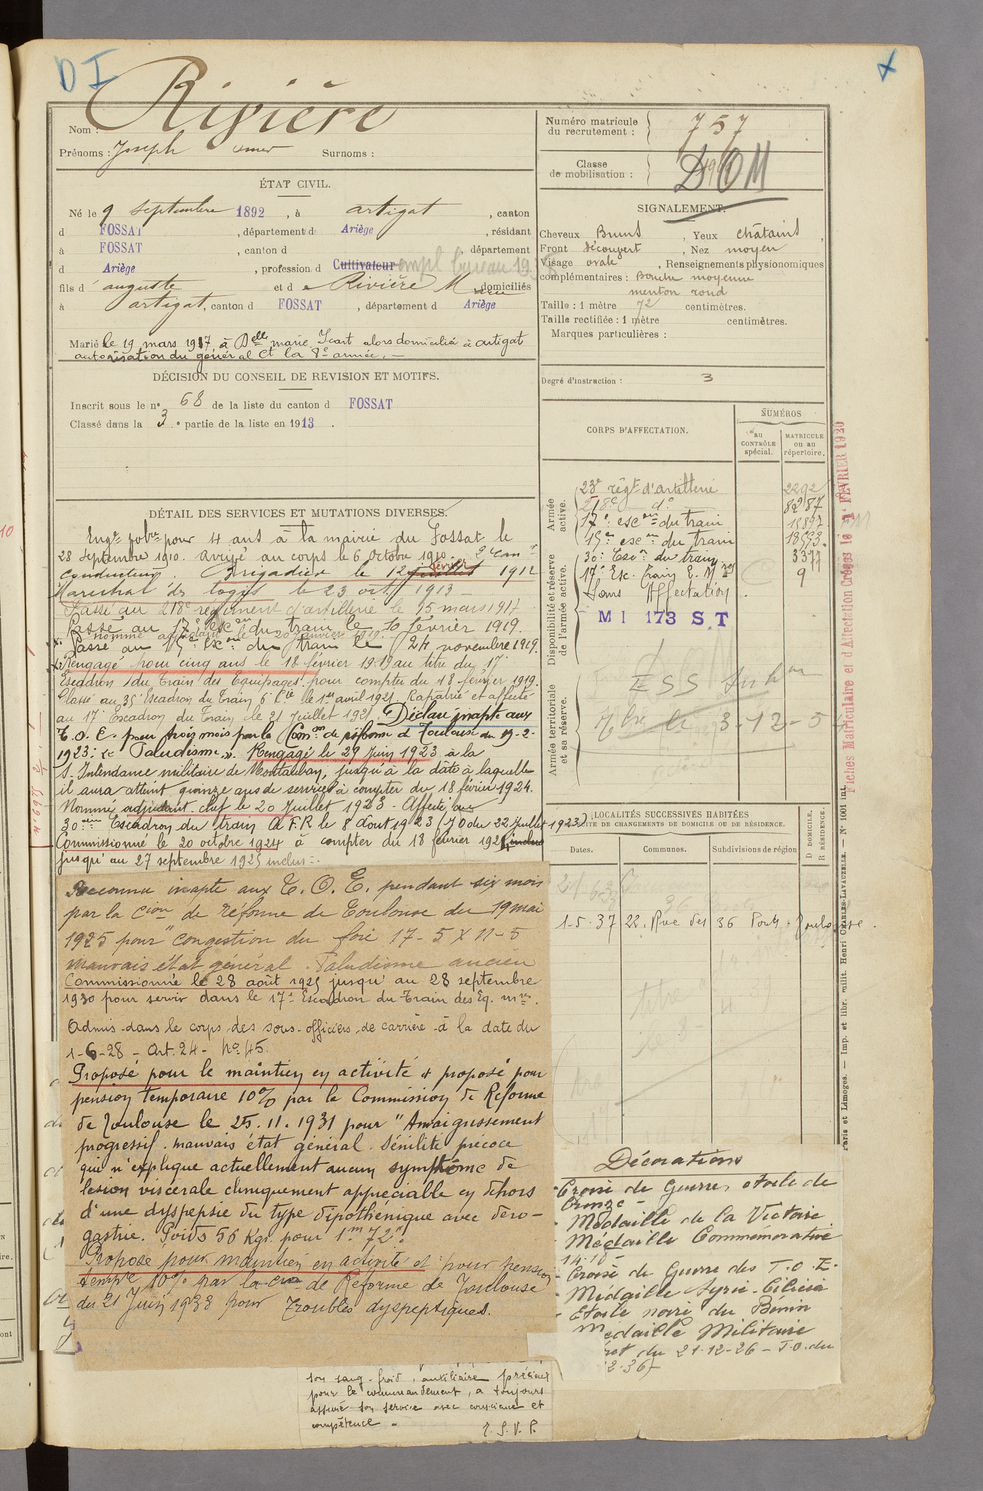 D I
Rivière
Nom :
Prénoms : Joseph Omer Surnoms :
ÉTAT CIVIL.
Né le 9 septembre 1892, à artigat, canton
d FOSSAT, département d Ariège, résidant
à FOSSAT, canton d département
d Ariège, profession d Cultivateur empl bureau
fils d' auguste et de Rivière domiciliés
à artigat, canton d FOSSAT, département d Ariège
Marié le 19 mars 1917, à Delle marie Icart alors domiciliée à artigat
autorisation du général Ct la 8e armée. —
DÉCISION DU CONSEIL DE REVISION ET MOTIFS.
Inscrit sous le no 68 de la liste du canton d FOSSAT
Classé dans la 3e partie de la liste en 1913.
DÉTAIL DES SERVICES ET MUTATIONS DIVERSES.
Engé volre pour 4 ans à la mairie du Fossat le
28 Septembre 1910. arrivé au corps le 6 Octobre 1910. 2e Canr
Conducteur. Brigadier le 12 juillet février 1912
Maréchal des logis le 23 octe 1913 -
Passé au 218e régiment d'artillerie le 15 mars 1917
Passé au 17e escon du train le 10 février 1919.
nommé adjudant le 20 janvier 1919.
Passé au 15e Esc. on du train le 24 novembre 1919.
Rengagé pour cinq ans le 18 février 1919 au titre du 17e
Escadron du Train des Equipages pour compter du 18 février 1919.
Classé au 35e Escadron du Train 6e Cie le 1er avril 1921. Rapatrié et affecté
au 17e Escadron du Train le 21 Juillet 1921 Déclaré inapte aux
T.O.E. pour trois mois par la Comon de réforme d Toulouse du 19-2-
1923: re "Paludisme". Rengagé le 29 Juin 1923 à la
S. Intendance militaire de Montauban, jusqu'à la date à laquelle
il aura atteint quinze ans de service à compter du 18 février 1924.
Nommé adjudant chef le 20 Juillet 1923 - Affecté au
30eme Escadron du train A.F.R le 8 août 1923 (JO du 22 juillet 1923)
Commissionné le 20 octobre 1924 à compter du 18 février 1925 inclus
jusqu'au 27 septembre 1925 inclus.
Reconnu inapte aux T.O.E. pendant six mois
par la Cion de réforme de Toulouse du 19 mai
1925 pour "congestion du foie 17-5 X 11-5
mauvais état général. Paludisme ancien
Commissionné le 28 août 1925 jusqu'au 28 septembre
1930 pour servir dans le 17e Escadron du Train des Eq. mres.
Admis dans le corps des sous-officiers de carrière à la date du
1-6-28 - Art. 24 - No 45.
Proposé pour le maintien en activité et proposé pour
pension temporaire 10% par la Commission de Réforme
de Toulouse le 25.11.1931 pour "Amaigrissement
progressif. mauvais état général. Sénilité précoce
qui n'explique actuellement aucun symptôme de
lésion viscérale cliniquement appréciable en dehors
d'une dyspepsie du type hyposthénique avec aéro-
gastrie. Poids 56 kgr. pour 1m 72".
Proposé pour maintien en activité et pour pension
tempre 10% par la Cion de Réforme de Toulouse
du 21 Juin 1933 pour Troubles dyspeptiques.
son sang-froid, auxiliaire précieux
pour le commandement, a toujours
assuré son service avec conscience et
compétence -
T.S.V.P.
Numéro matricule du recrutement : 757
Classe de mobilisation : DOM
SIGNALEMENT.
Cheveux Bruns, Yeux châtains,
Front découvert, Nez moyen
Visage ovale, Renseignements physionomiques
complémentaires : Bouche moyenne
menton rond
Taille : 1 mètre 72 centimètres.
Taille rectifiée : 1 mètre centimètres.
Marques particulières :
Degré d'instruction : 3
CORPS D'AFFECTATION.
NUMÉROS
au CONTRÔLE spécial.
MATRICULE ou au répertoire.
Armée active.
Disponibilité et réserve de l'armée active.
Armée territoriale et sa réserve.
23e régt d'artillerie 2292
218e do 8287
17e escon du train
15e escon du train
30e Escn du train 3377
17e Esc. Train E. Mres 9
Sans Affectation
M I 173 S.T
3-12-54
Fiches Matriculaire et d'Affectation Créées le 1er FÉVRIER 1930
LOCALITÉS SUCCESSIVES HABITÉES
SUITE DE CHANGEMENTS DE DOMICILE OU DE RÉSIDENCE.
Dates.
Communes.
Subdivisions de région
D DOMICILE, R RÉSIDENCE.
1-5-37 22, Rue des 36 Ponts, Toulouse.
Paris et Limoges. — Imp. et libr. milit. Henri CHARLES-LAVAUZELLE. — No 1001 int
Décorations
- Croix de Guerre, étoile de
Bronze -
- Médaille de la Victoire
- Médaille Commémorative
14-18
- Croix de Guerre des T.O.E.
- Médaille Syrie-Cilicie
- Etoile noire du Bénin
Médaille Militaire
du 21-12-26 - J.O. du